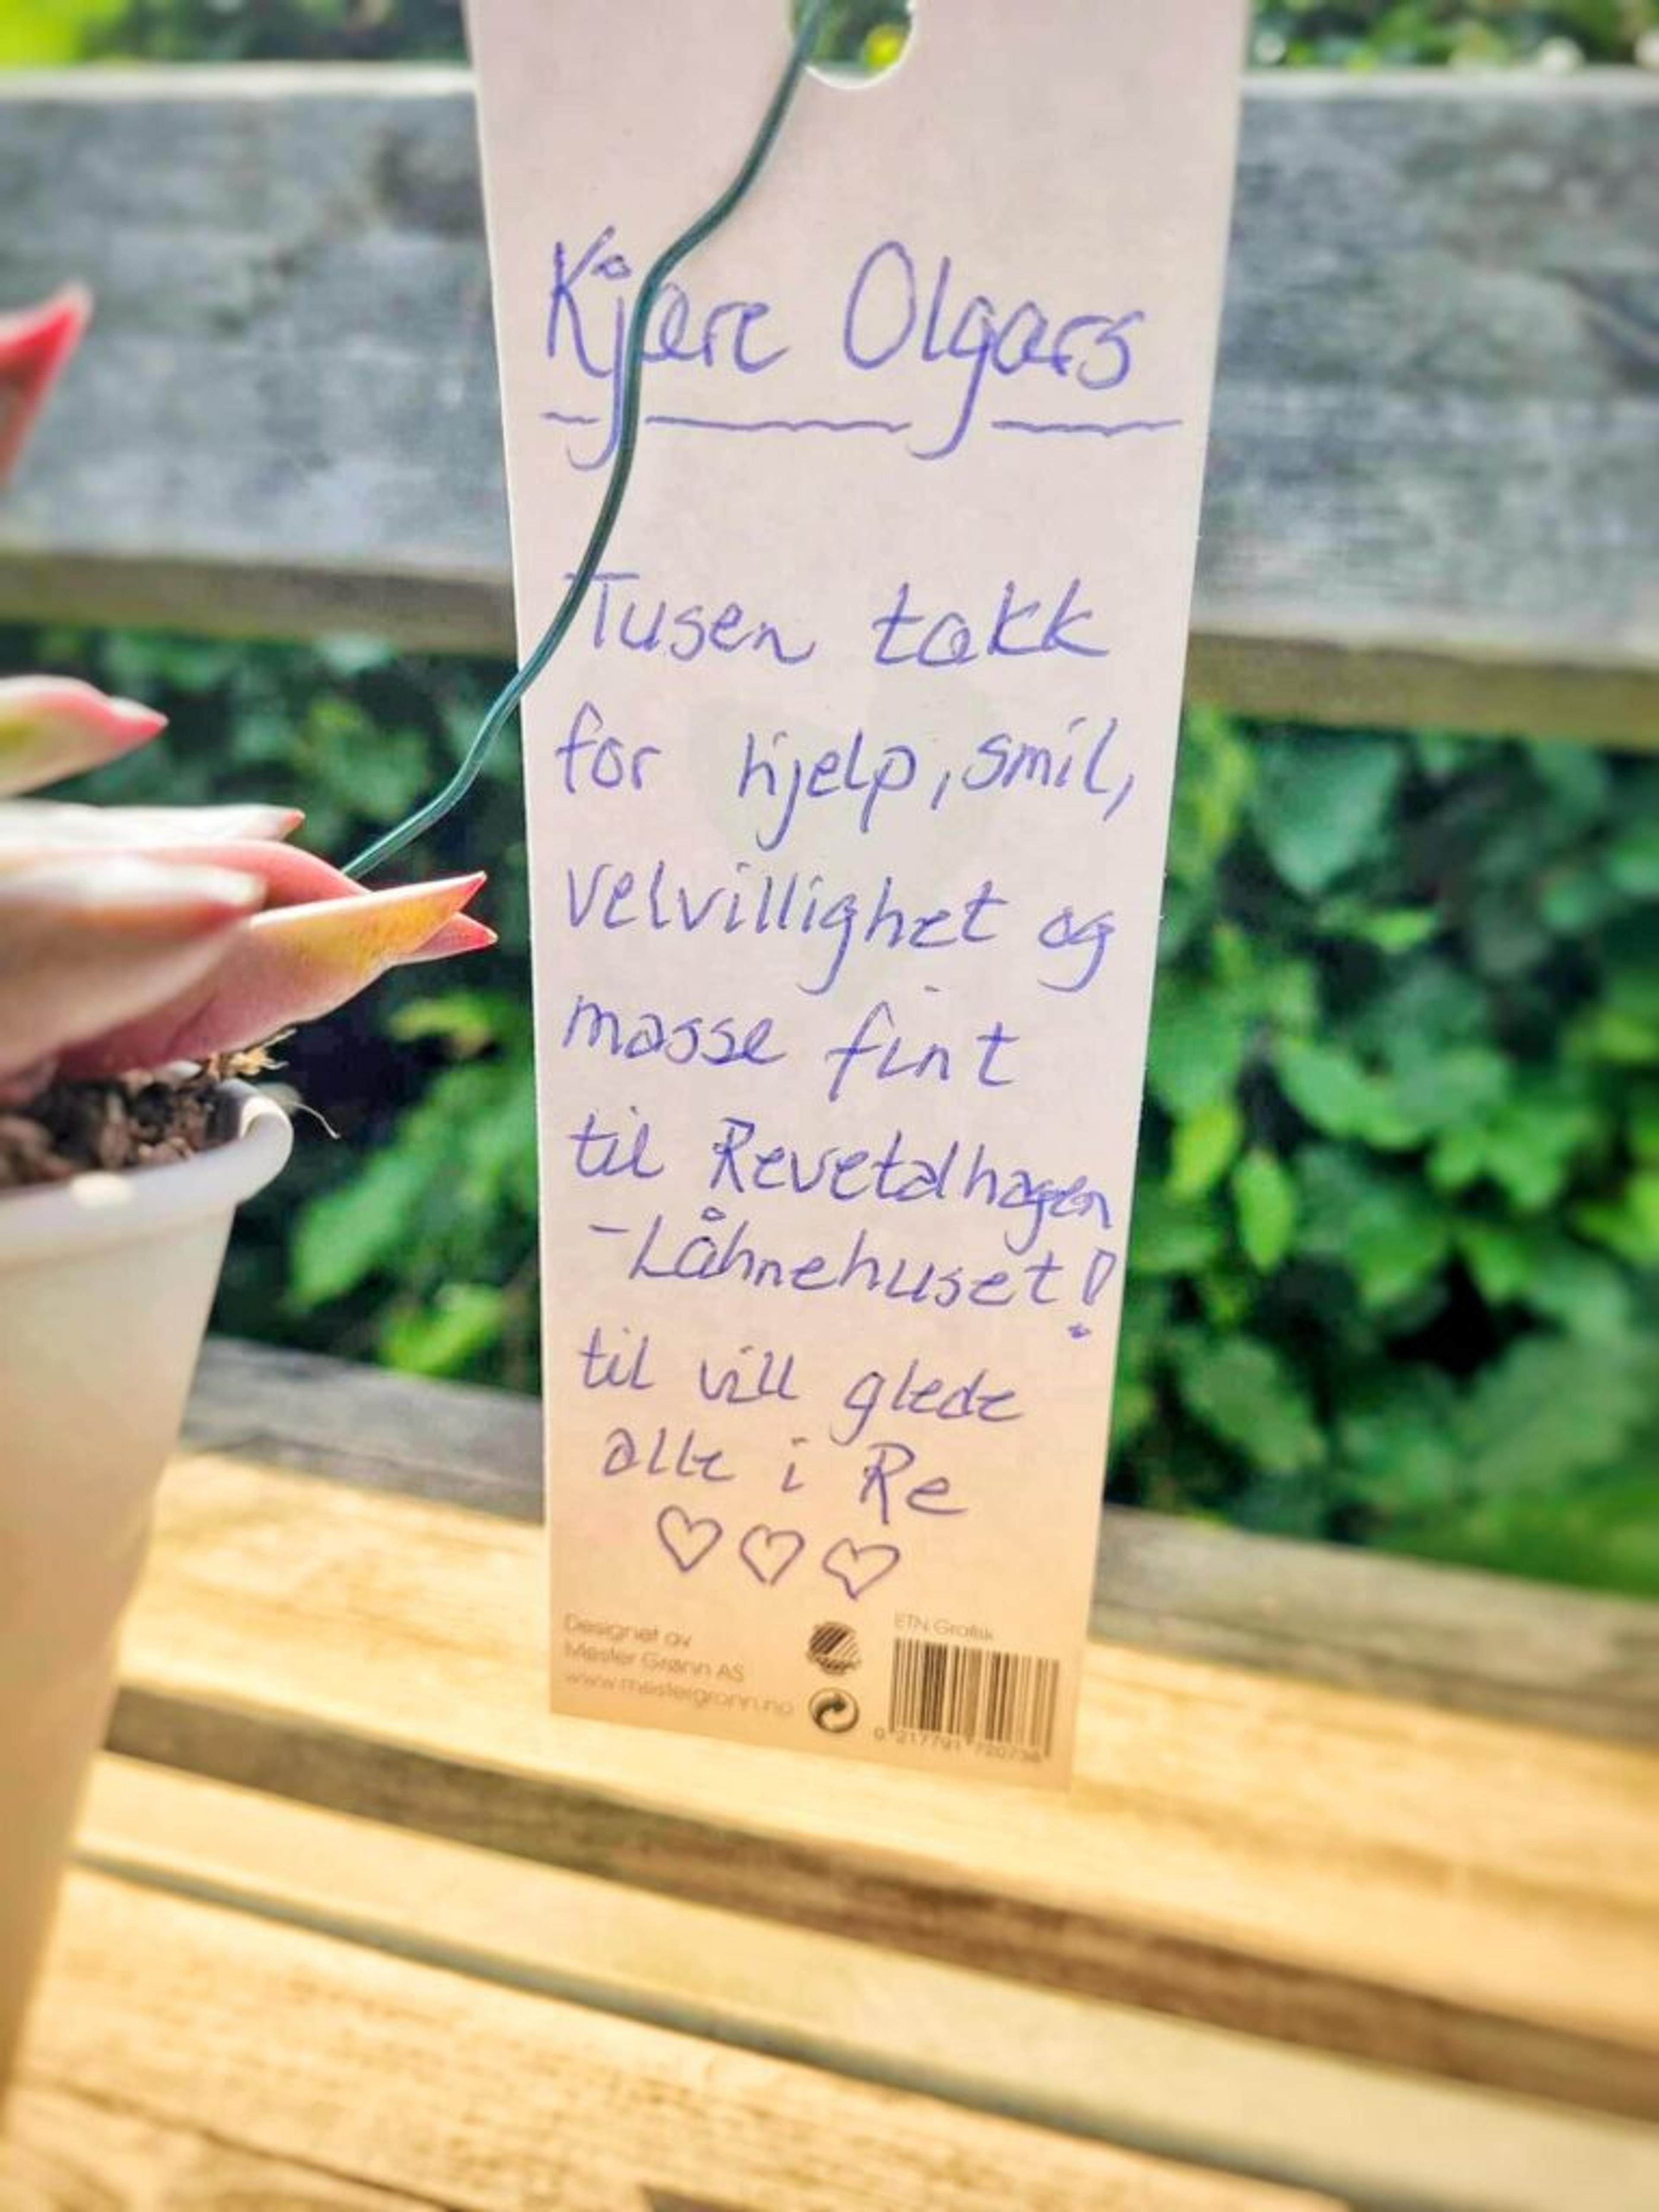 Kjære Olgars
Tusen takk
for hjelp, smil,
velvillighet og
masse fint
til Revetalhagen
-Låhnehuset!
til vill glede
alle i Re
♡♡♡
Designet av
Mester Grønn AS
www.mestergronn.no
ETN Grafisk